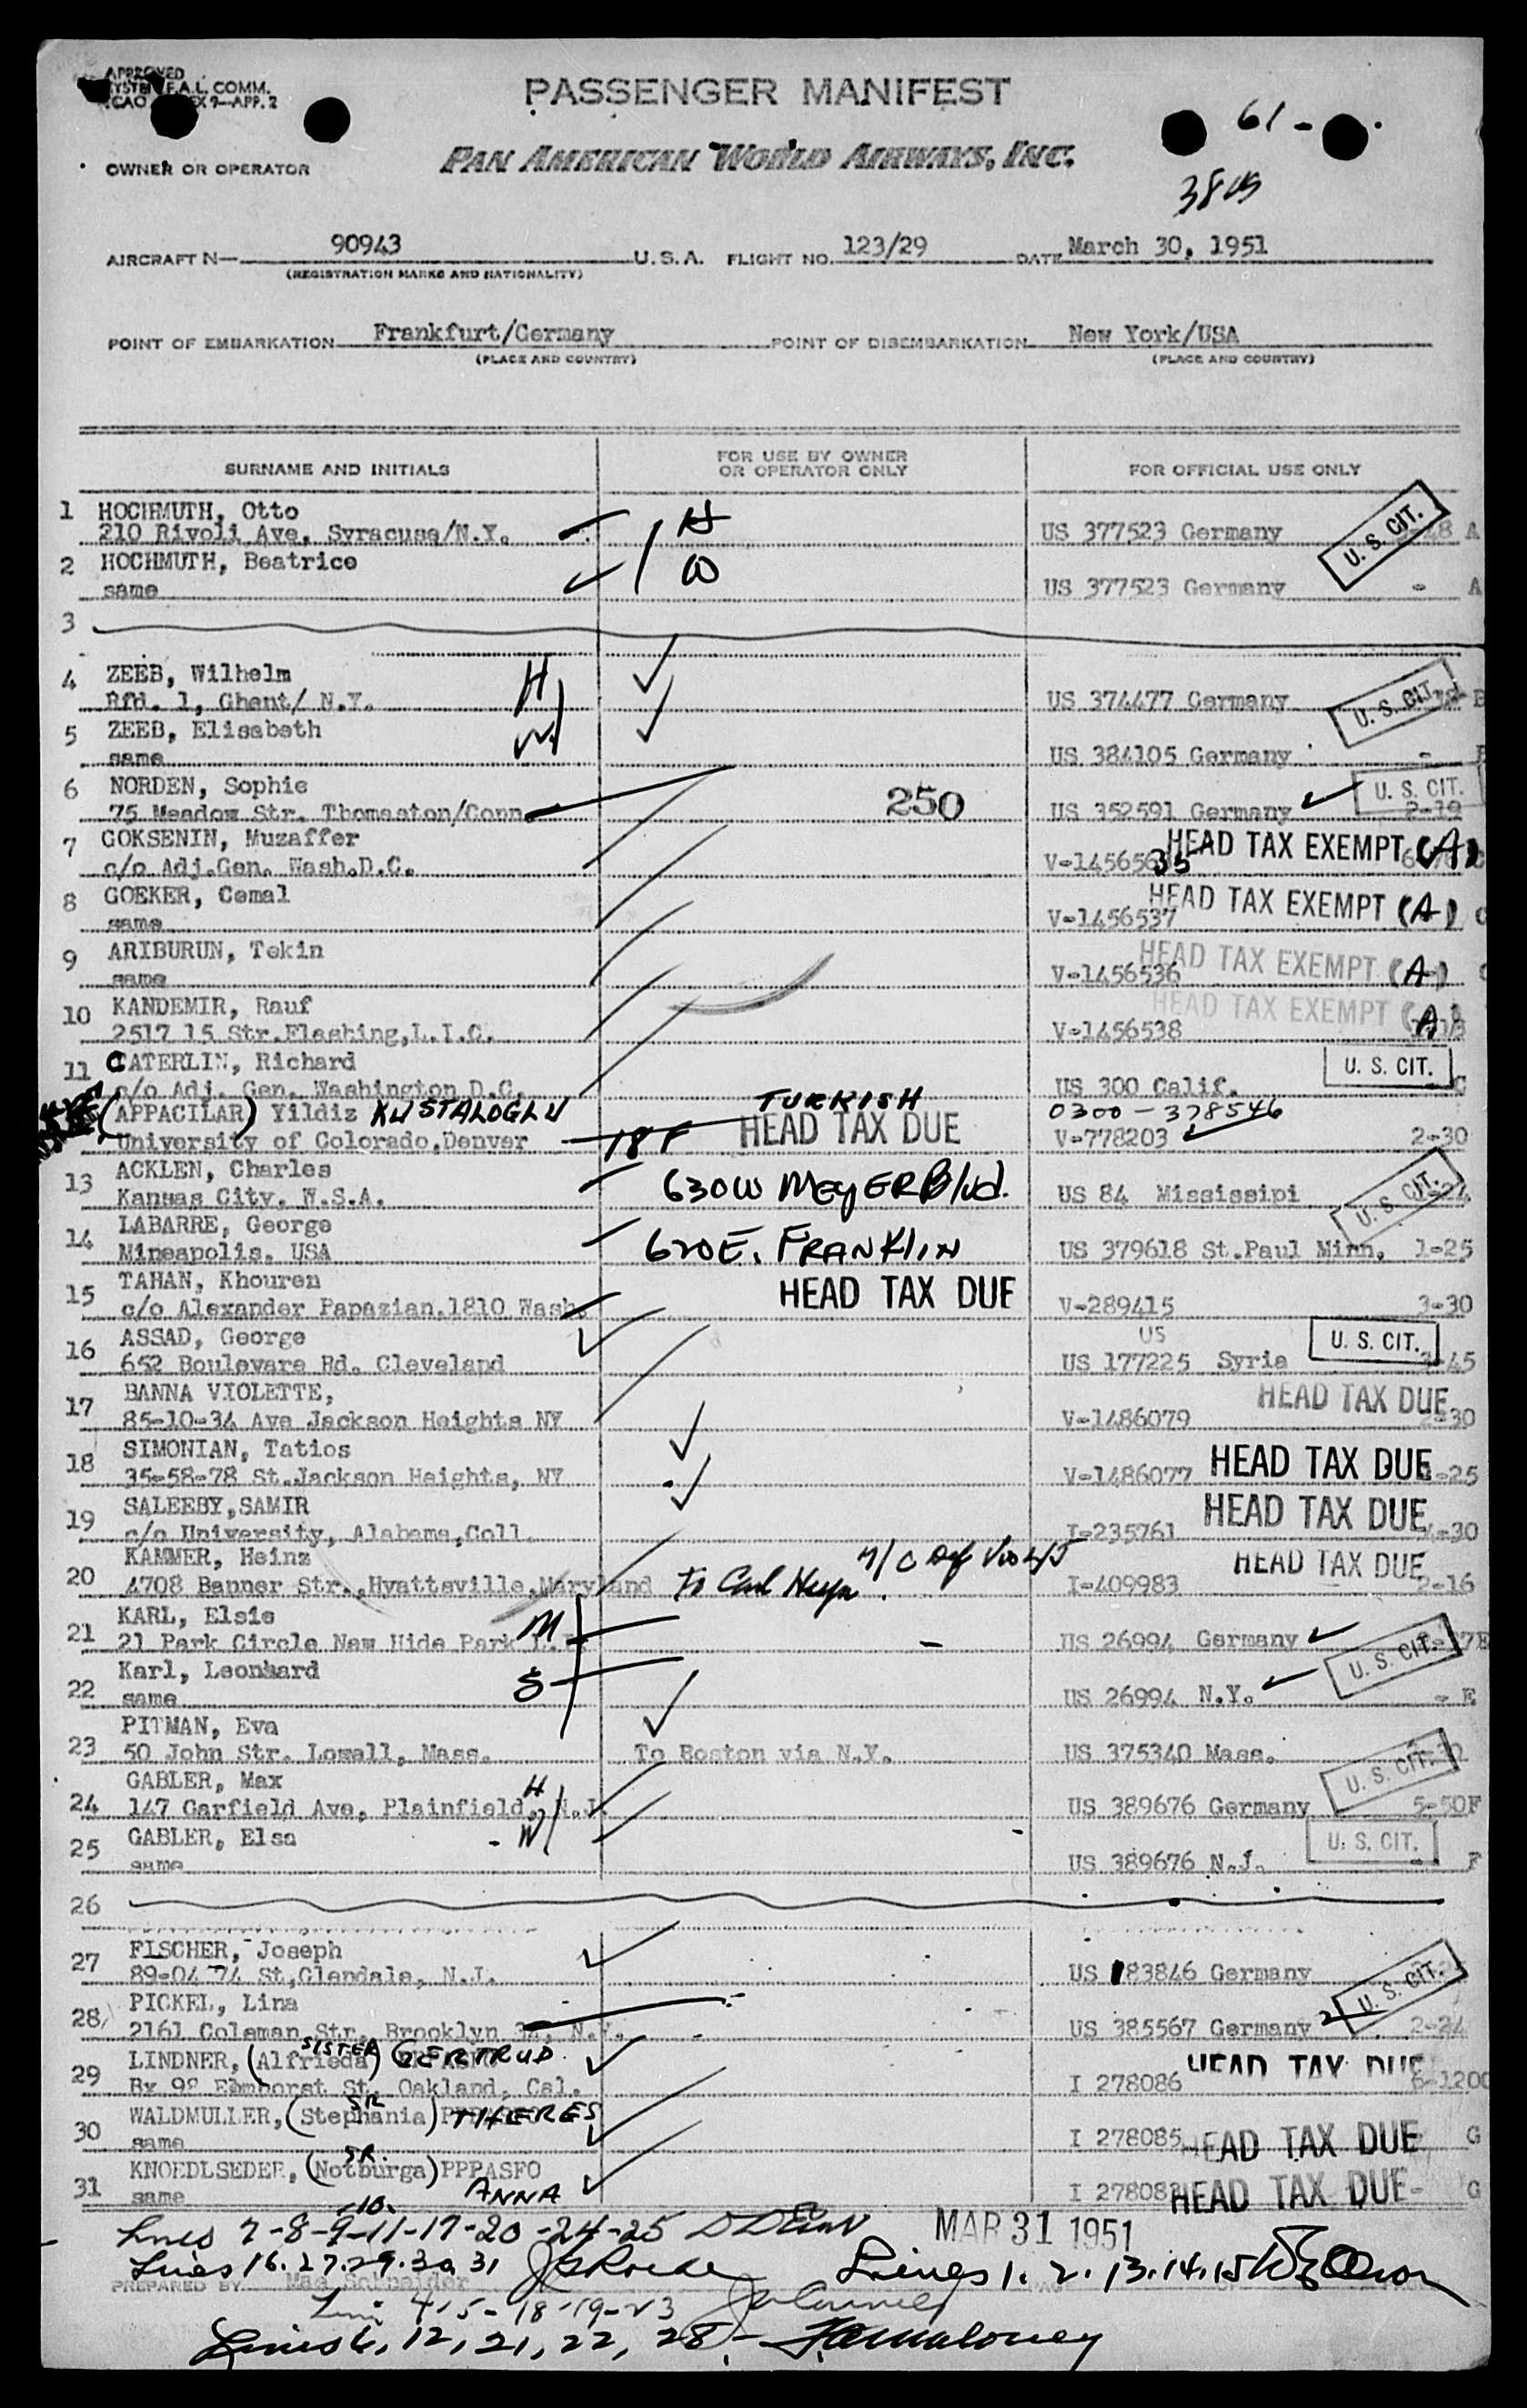 APPROVED
SYSTEM F.A.L. COMM.
ICAO ANNEX 9—APP. 2
PASSENGER MANIFEST
61-
OWNER OR OPERATOR PAN AMERICAN WORLD AIRWAYS, INC.
AIRCRAFT N— 90943 U.S.A. FLIGHT NO. 123/29 DATE March 30, 1951
(REGISTRATION MARKS AND NATIONALITY)
POINT OF EMBARKATION Frankfurt/Germany POINT OF DISEMBARKATION New York/USA
(PLACE AND COUNTRY) (PLACE AND COUNTRY)
SURNAME AND INITIALS FOR USE BY OWNER OR OPERATOR ONLY FOR OFFICIAL USE ONLY
1 HOCHMUTH, Otto H
210 Rivoli Ave, Syracuse/N.Y. US 377523 Germany U. S. CIT. A
2 HOCHMUTH, Beatrice W
same US 377523 Germany - A
3
4 ZEEB, Wilhelm H
Rfd. 1, Ghent/ N.Y. US 374477 Germany U. S. CIT. B
5 ZEEB, Elisabeth W
same US 384105 Germany -
6 NORDEN, Sophie
75 Meadow Str. Thomaston/Conn. 250 US 352591 Germany U. S. CIT.
7 GOKSENIN, Muzaffer HEAD TAX EXEMPT (A)
c/o Adj.Gen. Wash.D.C. V-1456535 C
8 GOEKER, Cemal HEAD TAX EXEMPT (A)
same V-1456537 C
9 ARIBURUN, Tekin HEAD TAX EXEMPT (A)
same V-1456536
10 KANDEMIR, Rauf HEAD TAX EXEMPT (A)
2517 15 Str.Flashing,L.I.C. V-1456538
11 CATERLIN, Richard U. S. CIT.
c/o Adj. Gen. Washington D.C. US 300 Calif. - C
(APPACILAR) Yildiz KUSTALOGLU TURKISH 0300-378546
University of Colorado,Denver 18 F HEAD TAX DUE V-778203 2-30
13 ACKLEN, Charles
Kansas City, W.S.A. 630W MEYER Blvd. US 84 Mississipi U. S. CIT.
14 LABARRE, George
Mineapolis, USA 620E. FRANKLIN US 379618 St.Paul Minn. 1-25
15 TAHAN, Khouren HEAD TAX DUE
c/o Alexander Papazian,1810 Wash. V-289415 3-30
16 ASSAD, George US U. S. CIT.
652 Boulevare Rd. Cleveland US 177225 Syria
17 BANNA VIOLETTE, HEAD TAX DUE
85-10-34 Ave Jackson Heights NY V-1486079
18 SIMONIAN, Tatios HEAD TAX DUE
35-58-78 St.Jackson Heights, NY V-1486077
19 SALEEBY,SAMIR HEAD TAX DUE
c/o University, Alabama,Coll. I-235761
20 KAMMER, Heinz HEAD TAX DUE
4708 Banner Str.,Hyattsville,Maryland I-409983 2-16
21 KARL, Elsie M
21 Park Circle New Hide Park US 26994 Germany U. S. CIT. E
22 Karl, Leonhard S
same US 26994 N.Y. - E
23 PITMAN, Eva
50 John Str. Lowall, Mass. To Boston via N.Y. US 375340 Mass.
24 GABLER, Max H U. S. CIT.
147 Garfield Ave, Plainfield, N.J. US 389676 Germany 5-50F
25 GABLER, Elsa W U. S. CIT.
same US 389676 N.J. - F
26
27 FISCHER, Joseph
89-04 74 St,Glendale, N.J. US 183846 Germany U. S. CIT.
28 PICKEL, Lina
2161 Coleman Str. Brooklyn 34, N.Y. US 385567 Germany 2-24
29 LINDNER, (Alfrieda) SISTER GERTRUD HEAD TAX DUE
Bx 98 Elmhorst St. Oakland, Cal. I 278086
30 WALDMULLER, (Stephania) SR THERES
same I 278085 HEAD TAX DUE G
31 KNOEDLSEDER, (Notburga) SR. PPPASFO ANNA
same HEAD TAX DUE - G
Lines 7-8-9-10-11-17-20-24-25 MAR 31 1951
Lines 16.27.29.30 31 Lines 1. 2. 13.14.15
PREPARED BY Max Schneider
4-5-18-19-23
Lines 6, 12, 21, 22, 28,